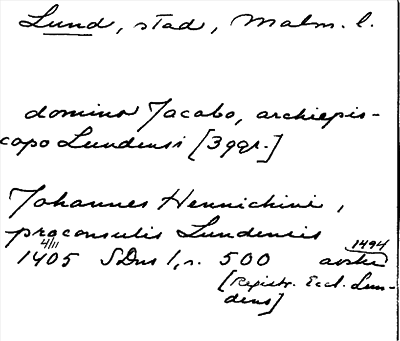 Lund, stad, Malm. l.
domino Jacobo, archiepis-
copo Lundensi [3 ggr.]
Johannes Hennichini,
proconsulis Lundensis
4/11 1494
1405 SDns 1, s. 500 avskr
[Registr. Eccl. Lun-
dens]